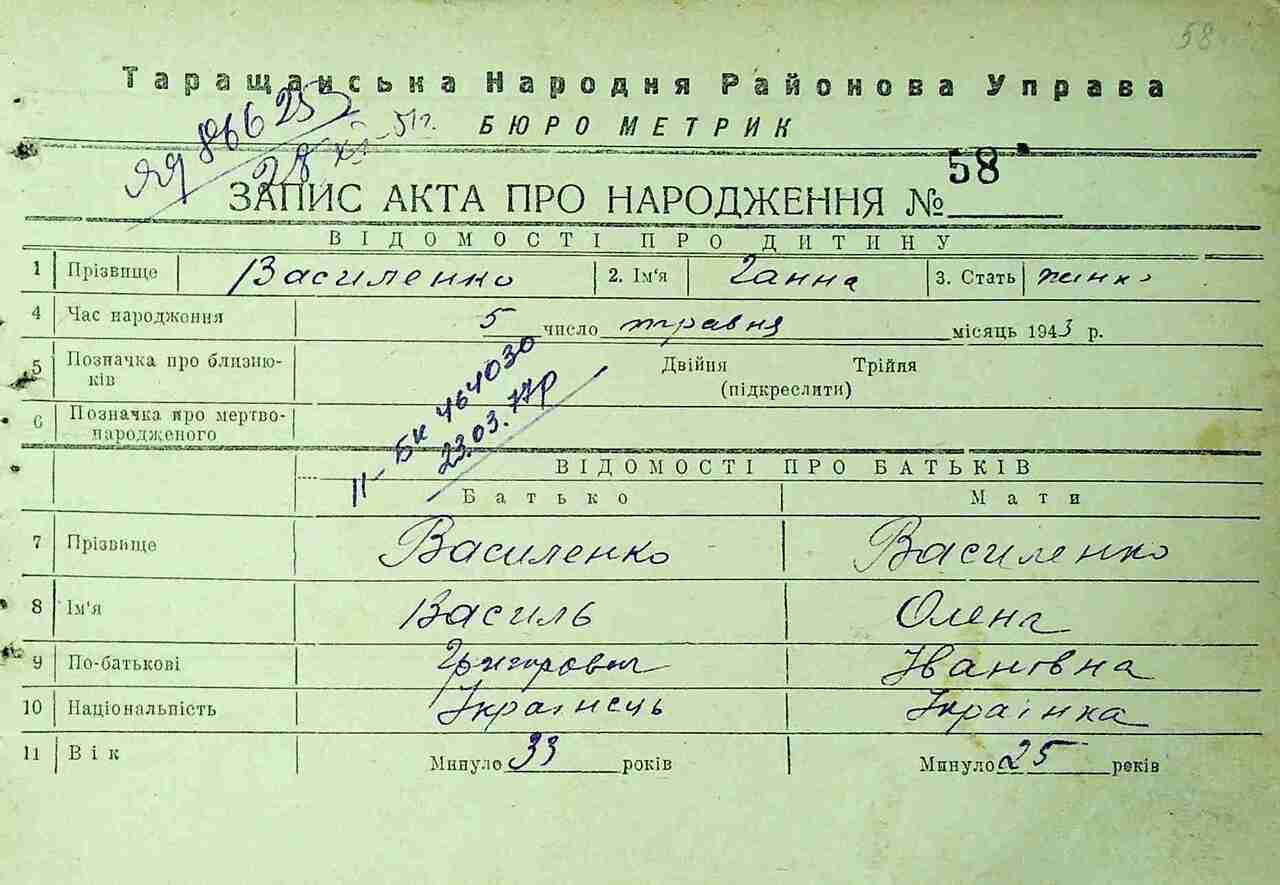 58
Таращанська Народня Районова Управа
ЯЯ 866255
28 XI 51 г.
БЮРО МЕТРИК
ЗАПИС АКТА ПРО НАРОДЖЕННЯ № 58
ВІДОМОСТІ ПРО ДИТИНУ
1 Прізвище Василенко 2. Ім'я Ганна 3. Стать
4 Час народження 5 число травня місяць 1943 р.
5 Позначка про близню-
ків
Двійня Трійня
(підкреслити)
6 Позначка про мертво-
народженого
II-БК 464030
23.03.77р
ВІДОМОСТІ ПРО БАТЬКІВ
Батько Мати
7 Прізвище Василенко Василенко
8 Ім'я Василь Олена
9 По-батькові Івановна
10 Національність Українець Українка
11 Вік Минуло 33 років Минуло 25 років